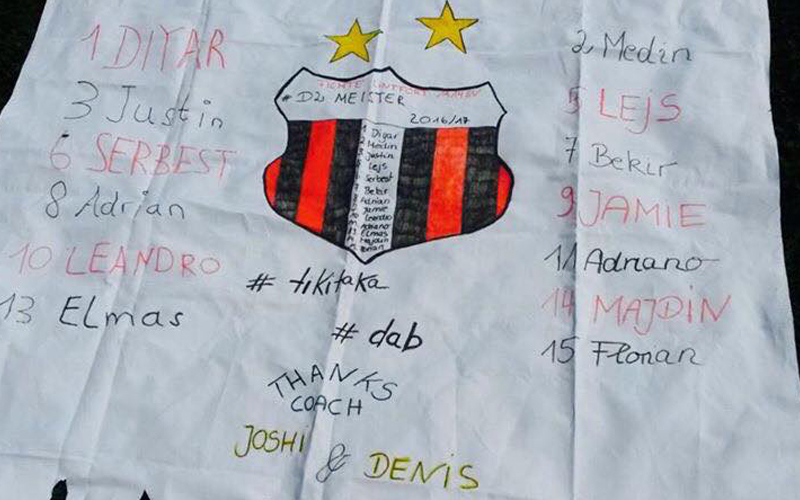 1 DIYAR
3 Justin
6 SERBEST
8 Adrian
10 LEANDRO
13 Elmas
# D2 MEISTER
2016/17
1 Diyar
2 Medin
3 Justin
Lejs
Serbest
Bekir
Adrian
Jamie
Leandro
Adriano
Elmas
Majdin
Florian
# tikitaka
# dab
THANKS
COACH
JOSHI
& DENIS
2 Medin
5 LEJS
7 Bekir
9 JAMIE
11 Adriano
14 MAJDIN
15 Florian